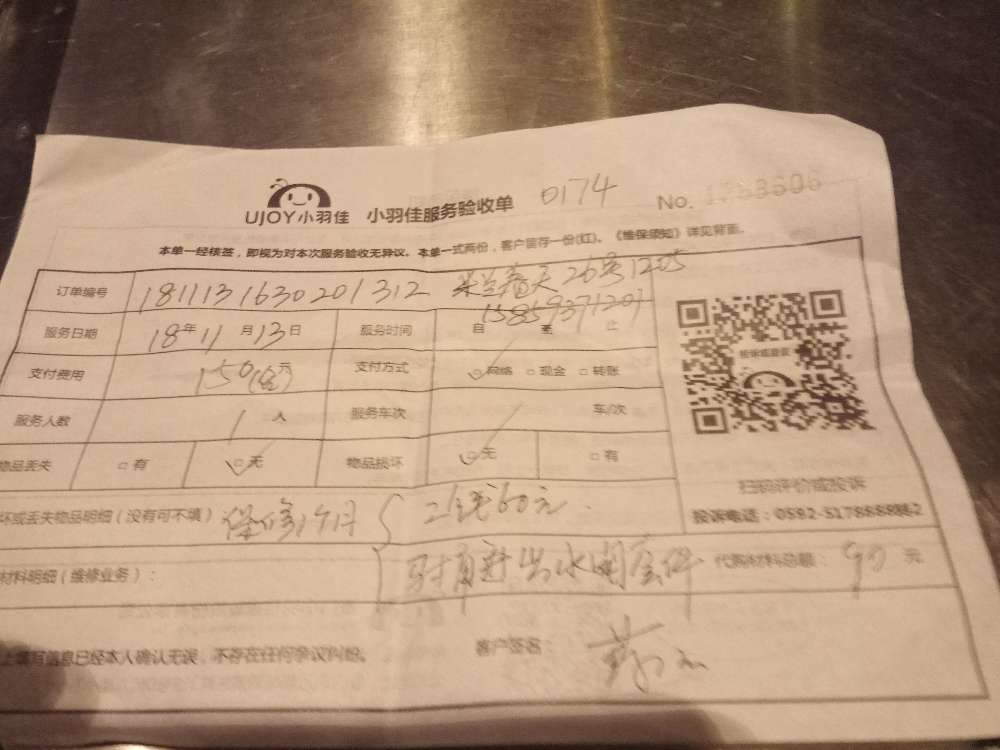 UJOY小羽佳 小羽佳服务验收单 0174 No.
本单一经核签，即视为对本次服务验收无异议。本单一式两份，客户留存一份(红)。《维保须知》详见背面。
订单编号 1811131630201312 春天26号1205
15859371207
服务日期 18年11月13日 服务时间 自 至 止
支付费用 150 元 支付方式 网络 现金 转账
服务人数 1人 服务车次 / 车/次
物品丢失 有 无 物品损坏 无 有
坏或丢失物品明细（没有可不填） 保修1个月 工钱60元.
材料明细（维修业务）： 出水阁 件 代购材料总额： 90 元
扫码评价或投诉
投诉电话：0592-5178888转2
上填写信息已经本人确认无误，不存在任何争议纠纷。 客户签名：
投诉或建议